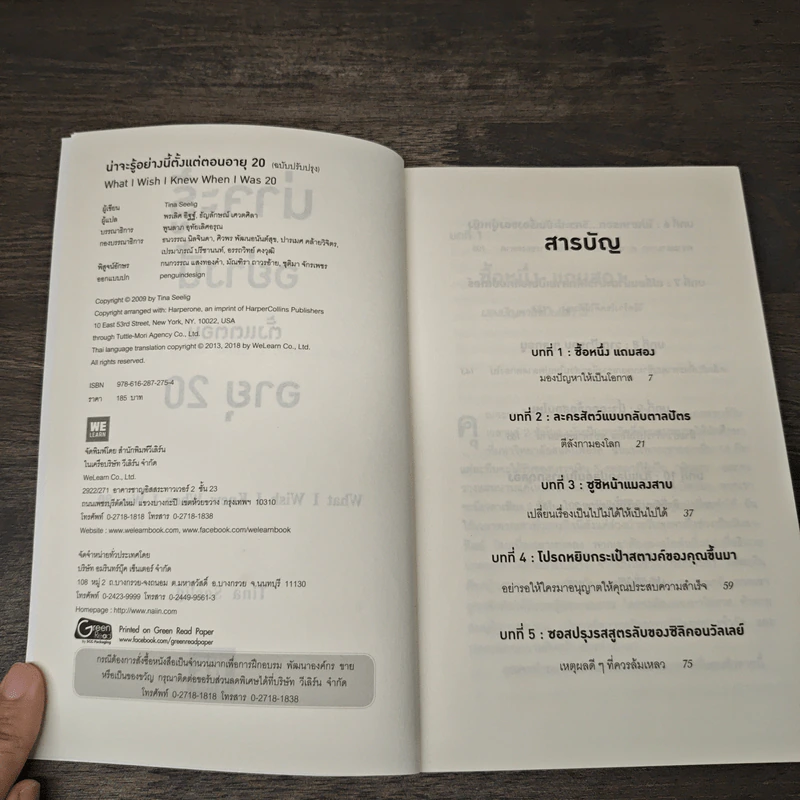 น่าจะรู้อย่างนี้ตั้งแต่ตอนอายุ 20 (ฉบับปรับปรุง)
What I Wish I Knew When I Was 20
ผู้เขียน Tina Seelig
ผู้แปล พรเลิศ อิฐฐ์, ธัญลักษณ์ เศวตศิลา
บรรณาธิการ พูนลาภ อุทัยเลิศอรุณ
กองบรรณาธิการ ธนวรรณ นิลจินดา, ศิวพร พัฒนอนันต์สุข, ปารเมศ คล้ายวิจิตร,
เปรมาภรณ์ ปรีชานนท์, อรรถวิทย์ คงวุฒิ
พิสูจน์อักษร กนกวรรณ แสงทองคำ, มัณฑิรา ถาวรอ้าย, ชุติมา จักรเพชร
ออกแบบปก penguindesign
Copyright © 2009 by Tina Seelig
Copyright arranged with: Harperone, an imprint of HarperCollins Publishers
10 East 53rd Street, New York, NY. 10022, USA
through Tuttle-Mori Agency Co., Ltd.
Thai language translation copyright © 2013, 2018 by WeLearn Co., Ltd.
All rights reserved.
ISBN 978-616-287-275-4
ราคา 185 บาท
WE
LEARN
จัดพิมพ์โดย สำนักพิมพ์วีเลิร์น
ในเครือบริษัท วีเลิร์น จำกัด
WeLearn Co., Ltd.
2922/271 อาคารชาญอิสสระทาวเวอร์ 2 ชั้น 23
ถนนเพชรบุรีตัดใหม่ แขวงบางกะปิ เขตห้วยขวาง กรุงเทพฯ 10310
โทรศัพท์ 0-2718-1818 โทรสาร 0-2718-1838
Website : www.welearnbook.com, www.facebook.com/welearnbook
จัดจำหน่ายทั่วประเทศโดย
บริษัท อมรินทร์บุ๊ค เซ็นเตอร์ จำกัด
108 หมู่ 2 ถ.บางกรวย-จงถนอม ต.มหาสวัสดิ์ อ.บางกรวย จ.นนทบุรี 11130
โทรศัพท์ 0-2423-9999 โทรสาร 0-2449-9561-3
Homepage : http://www.naiin.com
Green Read
Printed on Green Read Paper
www.facebook.com/greenreadpaper
กรณีต้องการสั่งซื้อหนังสือเป็นจำนวนมากเพื่อการฝึกอบรม พัฒนาองค์กร ขาย
หรือเป็นของขวัญ กรุณาติดต่อขอรับส่วนลดพิเศษได้ที่บริษัท วีเลิร์น จำกัด
โทรศัพท์ 0-2718-1818 โทรสาร 0-2718-1838
สารบัญ
บทที่ 1 : ซื้อหนึ่ง แถมสอง
มองปัญหาให้เป็นโอกาส 7
บทที่ 2 : ละครสัตว์แบบกลับตาลปัตร
ตีลังกามองโลก 21
บทที่ 3 : ซูชิหน้าแมลงสาบ
เปลี่ยนเรื่องเป็นไปไม่ได้ให้เป็นไปได้ 37
บทที่ 4 : โปรดหยิบกระเป๋าสตางค์ของคุณขึ้นมา
อย่ารอให้ใครมาอนุญาตให้คุณประสบความสำเร็จ 59
บทที่ 5 : ซอสปรุงรสสูตรลับของซิลิคอนวัลเลย์
เหตุผลดี ๆ ที่ควรล้มเหลว 75